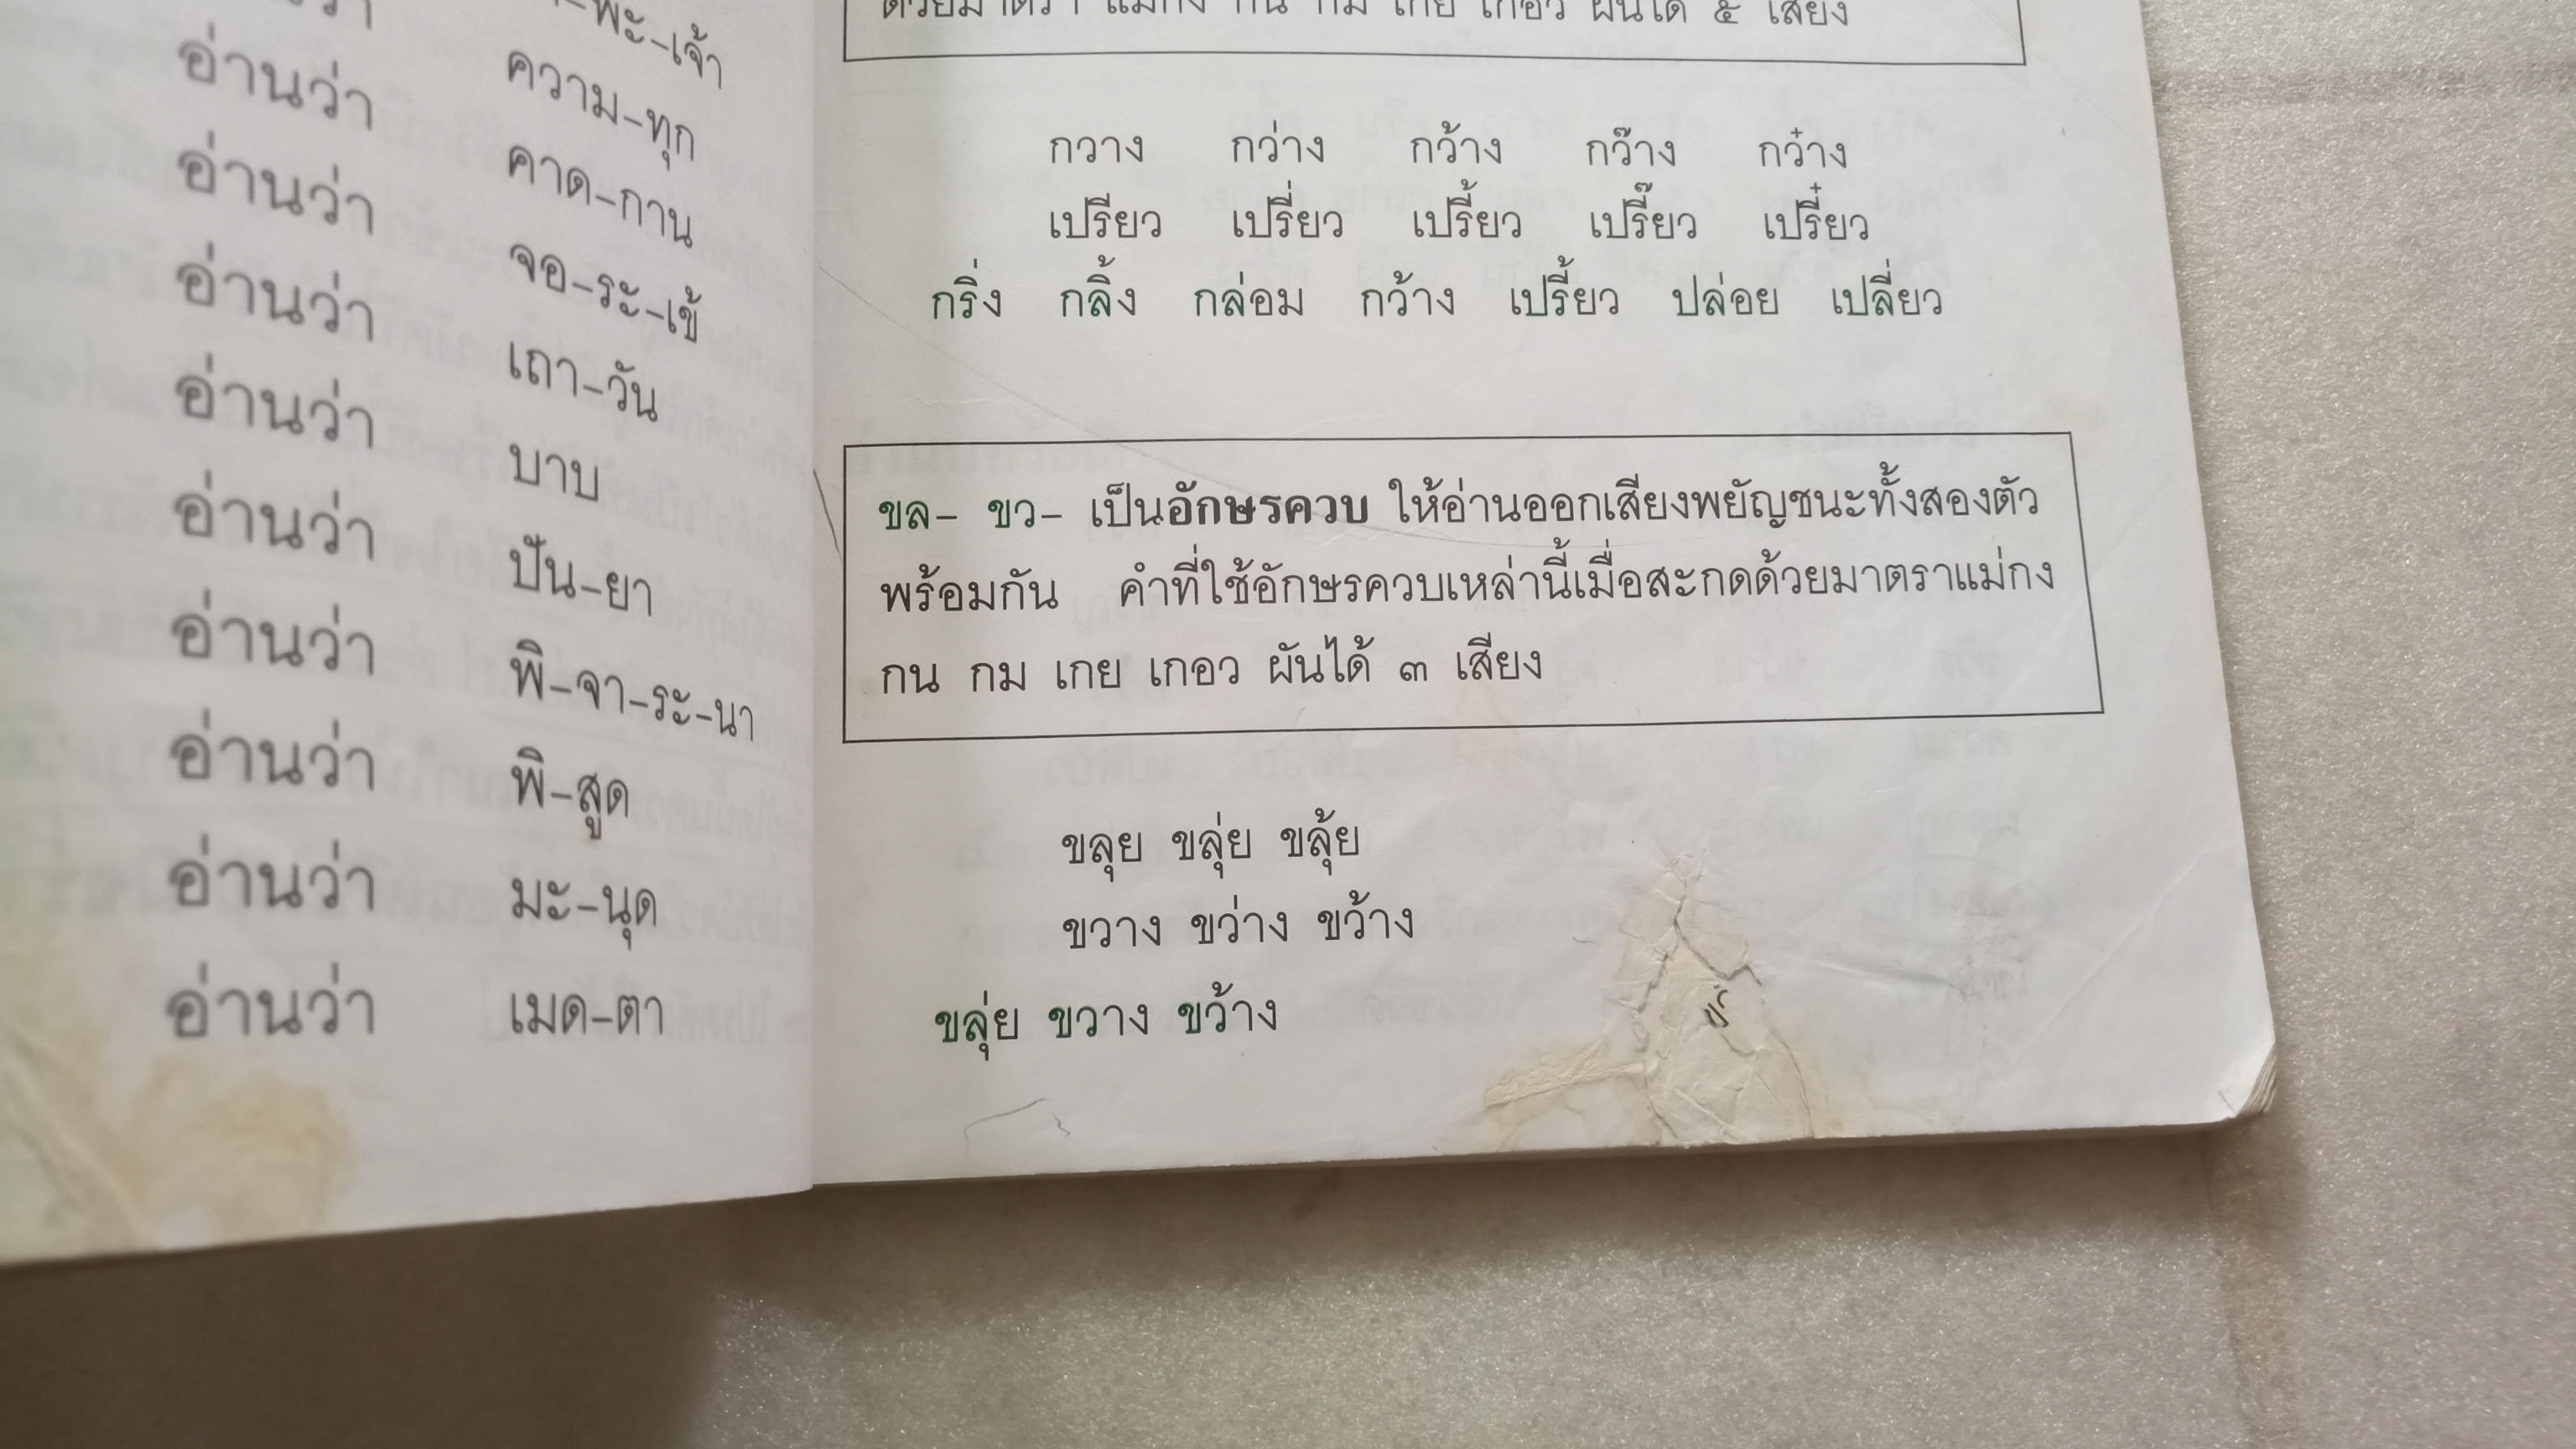 อ่านว่า ความ-ทุก
อ่านว่า คาด-กาน
อ่านว่า จอ-ระ-เข้
อ่านว่า เถา-วัน
อ่านว่า บาบ
อ่านว่า ปัน-ยา
อ่านว่า พิ-จา-ระ-นา
อ่านว่า พิ-สูด
อ่านว่า มะ-นุด
อ่านว่า เมด-ตา
ด้วยมาตรา แม่กง กน กม เกย เกอว ผันได้ ๕ เสียง
กวาง กว่าง กว้าง กว๊าง กว๋าง
เปรียว เปรี่ยว เปรี้ยว เปรี๊ยว เปรี๋ยว
กริ่ง กลิ้ง กล่อม กว้าง เปรี้ยว ปล่อย เปลี่ยว
ขล- ขว- เป็นอักษรควบ ให้อ่านออกเสียงพยัญชนะทั้งสองตัว
พร้อมกัน คำที่ใช้อักษรควบเหล่านี้เมื่อสะกดด้วยมาตราแม่กง
กน กม เกย เกอว ผันได้ ๓ เสียง
ขลุย ขลุ่ย ขลุ้ย
ขวาง ขว่าง ขว้าง
ขลุ่ย ขวาง ขว้าง